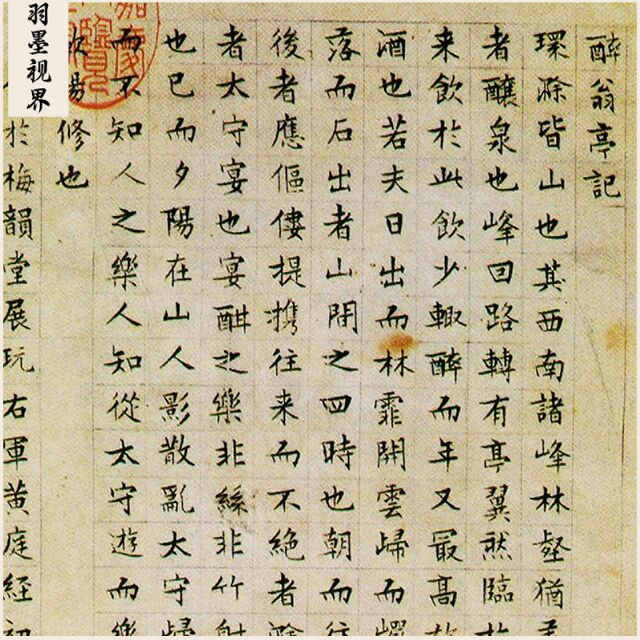 羽墨视界
醉翁亭記
環滁皆山也其西南諸峰林壑猶
者釀泉也峰回路轉有亭翼然臨
来飲於此飲少輙醉而年又最髙
酒也若夫日出而林霏開雲歸而
落而石出者山間之四時也朝而往
後者應傴僂提攜往来而不絶者滁
者太守宴也宴酣之樂非絲非竹射
也已而夕陽在山人影散亂太守歸
而不知人之樂人知從太守遊而樂
陽修也
於梅韻堂展玩右軍黄庭經初